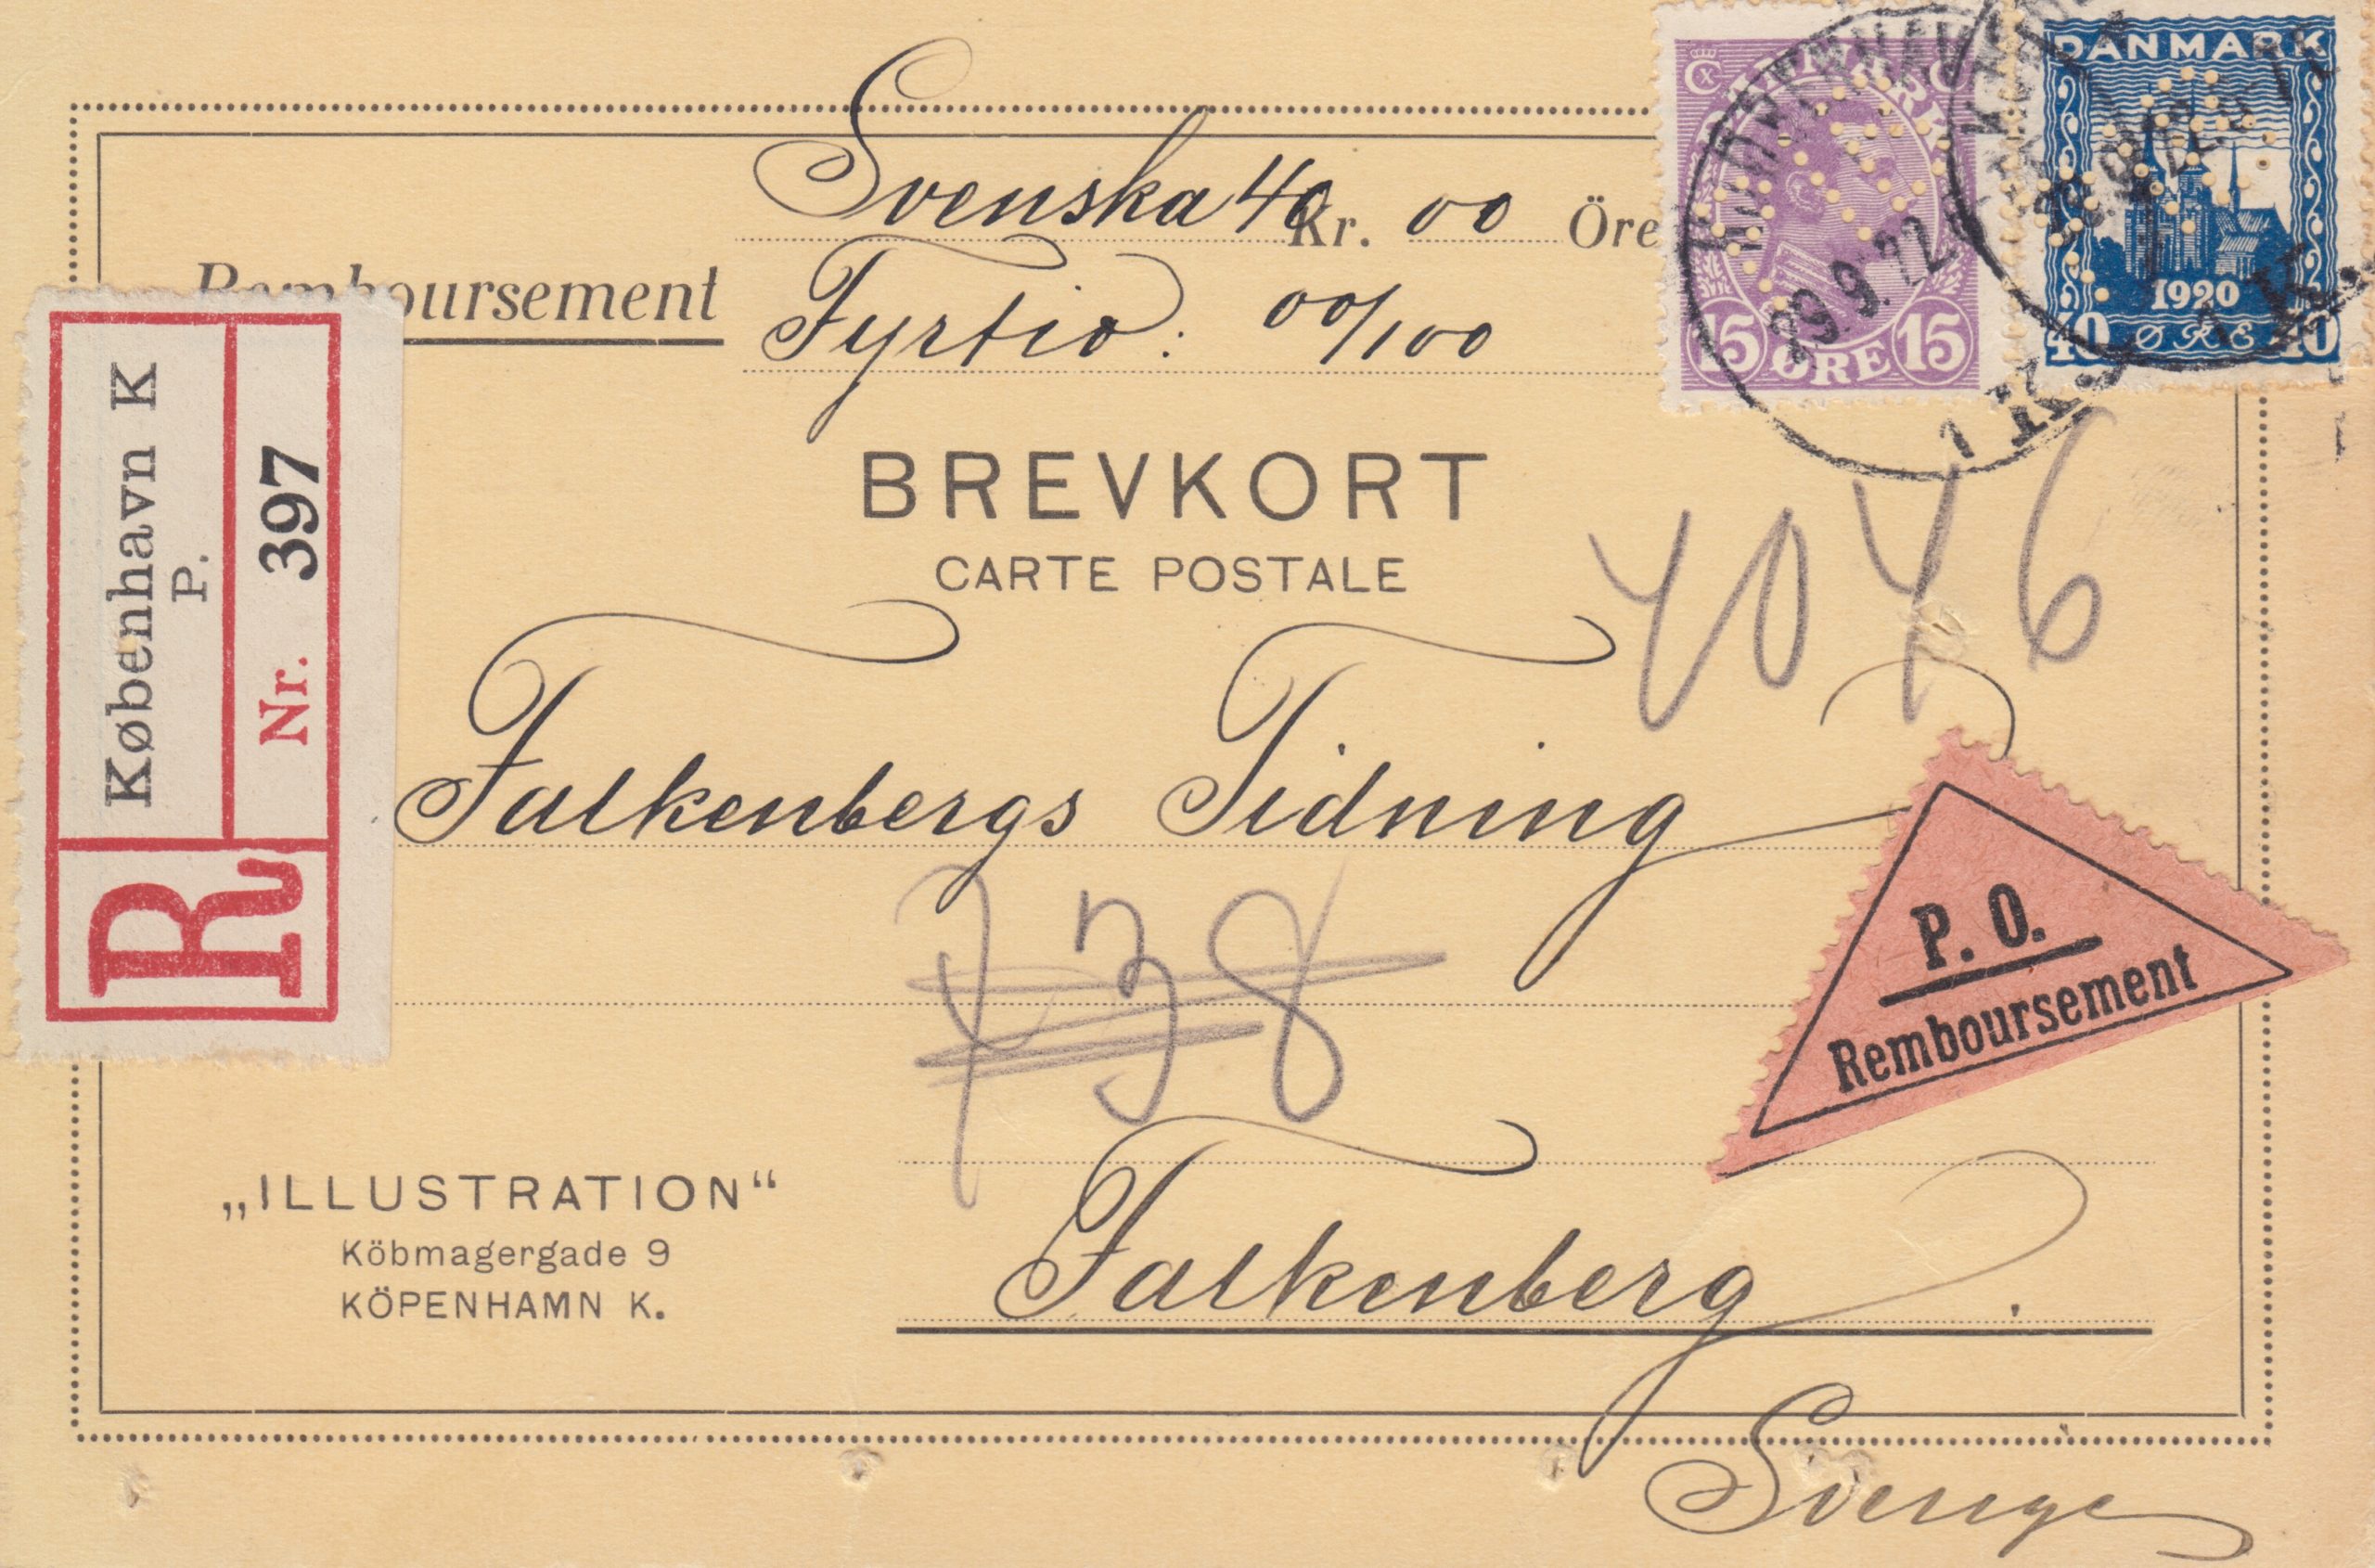 Svenska 40 Kr. 00 Öre
Remboursement
Fyrtio: 00/100
DANMARK
15 ØRE 15
29.9.22
DANMARK
1920
40 ØRE 40
K.
BREVKORT
CARTE POSTALE
København K
P.
Nr. 397
R
4046
Falkenbergs Tidning
738
P. O.
Remboursement
„ILLUSTRATION“
Köbmagergade 9
KÖPENHAMN K.
Falkenberg.
Sverige